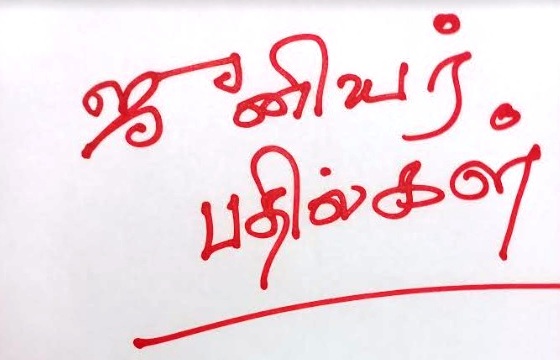 ஜூனியர்
பதில்கள்